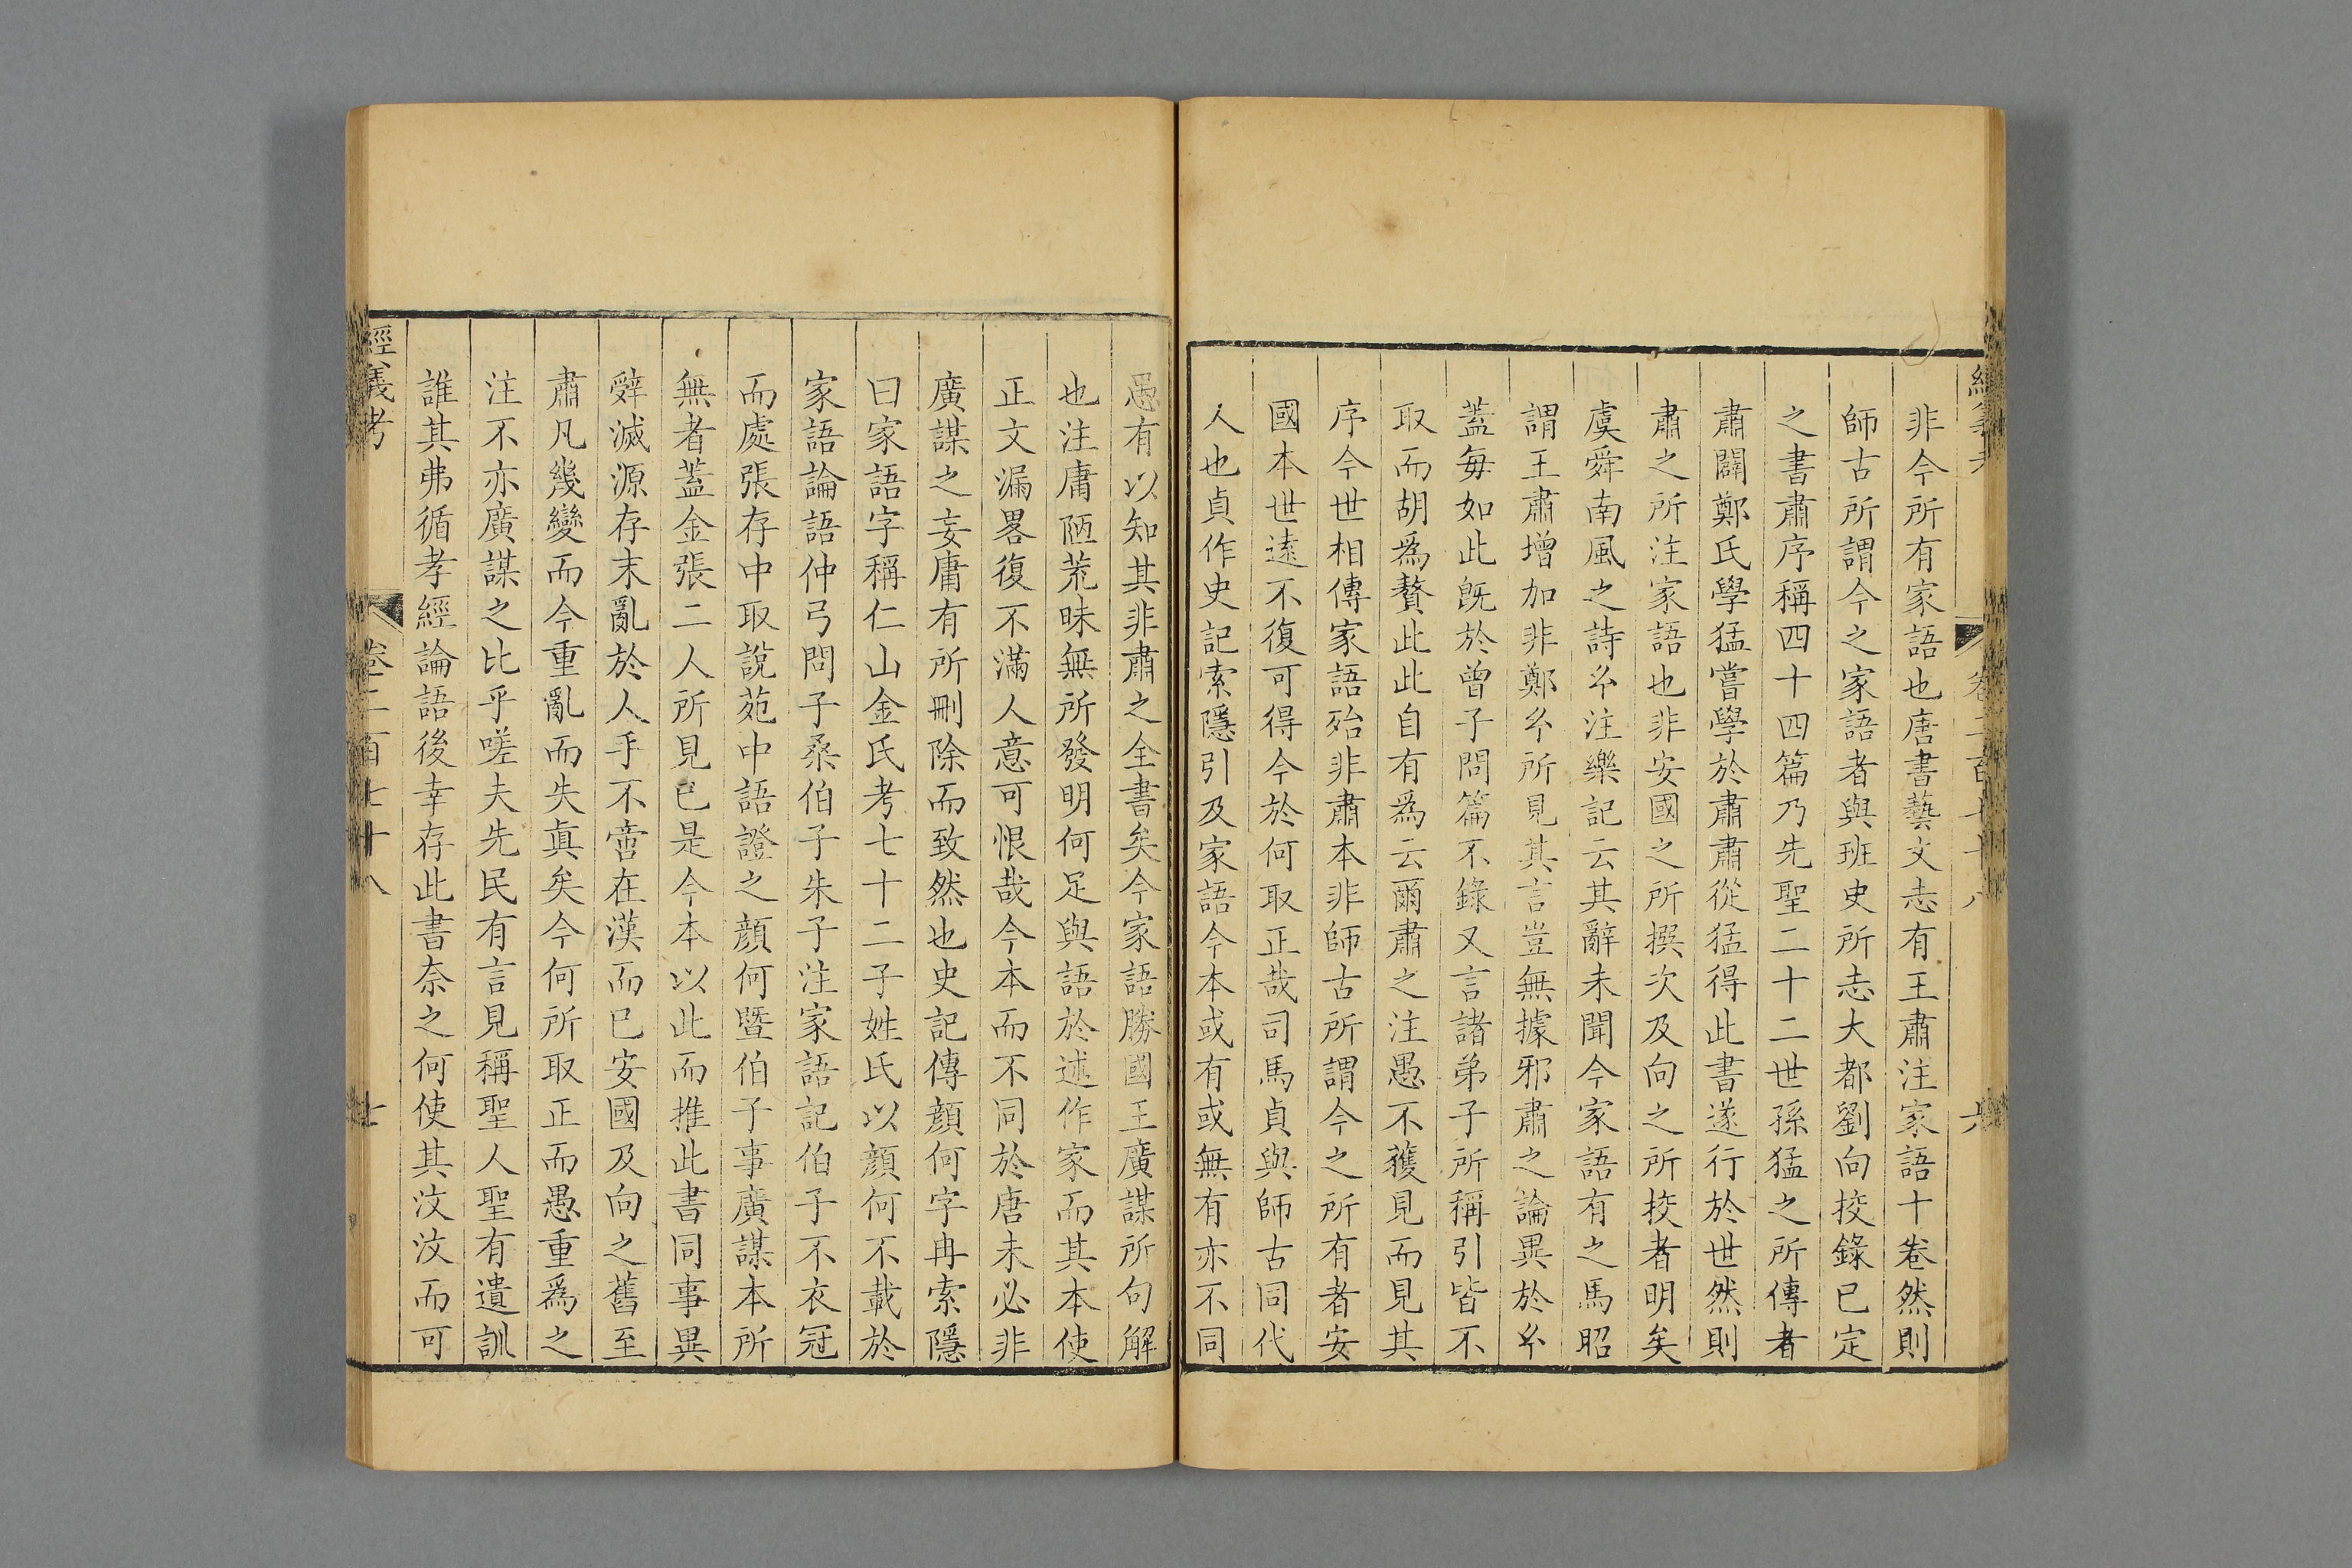 非今所有家語也唐書藝文志有王肅注家語十卷然則
師古所謂今之家語者與班史所志大都劉向挍錄已定
之書肅序稱四十四篇乃先聖二十二世孫猛之所傳者
肅闢鄭氏學猛嘗學於肅肅從猛得此書遂行於世然則
肅之所注家語也非安國之所撰次及向之所挍者明矣
虞舜南風之詩𤣥注樂記云其辭未聞今家語有之馬昭
謂王肅增加非鄭𤣥所見其言豈無據邪肅之論異於𤣥
蓋每如此旣於曾子問篇不錄又言諸弟子所稱引皆不
取而胡爲贅此此自有爲云爾肅之注愚不獲見而見其
序今世相傳家語殆非肅本非師古所謂今之所有者安
國本世遠不復可得今於何取正哉司馬貞與師古同代
人也貞作史記索隱引及家語今本或有或無有亦不同
愚有以知其非肅之全書矣今家語勝國王廣謀所句解
也注庸陋荒昧無所發明何足與語於述作家而其本使
正文漏畧復不滿人意可恨哉今本而不同於唐未必非
廣謀之妄庸有所刪除而致然也史記傳顔何字冉索隱
曰家語字稱仁山金氏考七十二子姓氏以顔何不載於
家語論語仲弓問子桑伯子朱子注家語記伯子不衣冠
而處張存中取說苑中語證之顔何暨伯子事廣謀本所
無者蓋金張二人所見已是今本以此而推此書同事異
辭滅源存末亂於人手不啻在漢而已安國及向之舊至
肅凡幾變而今重亂而失眞矣今何所取正而愚重爲之
注不亦廣謀之比乎嗟夫先民有言見稱聖人聖有遺訓
誰其弗循孝經論語後幸存此書奈之何使其汶汶而可
經義考 卷二百七十八 七